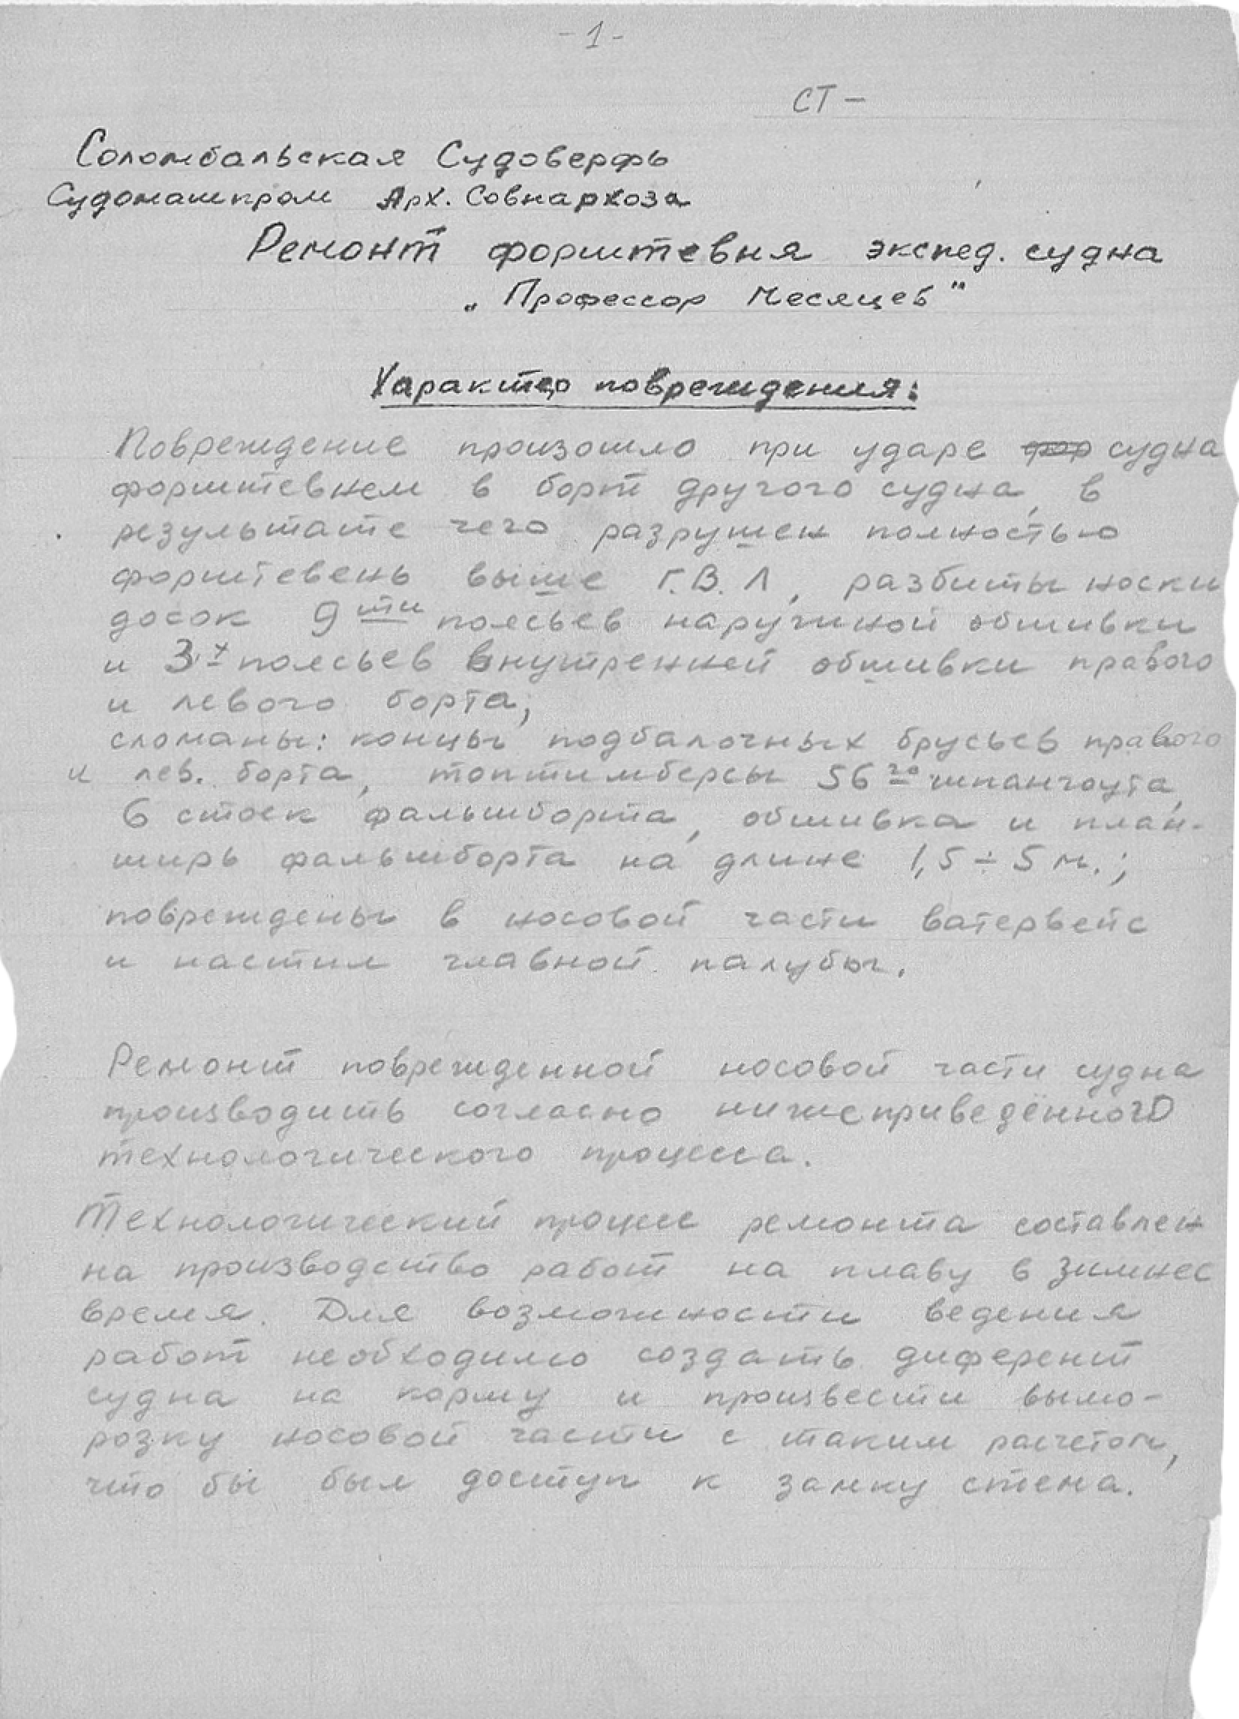 - 1 -
СТ -
Соломбальская Судоверфь
Судомашпром Арх. Совнархоза
Ремонт форштевня экспед. судна
„Профессор Месяцев"
Характер повреждения:
Повреждение произошло при ударе фор судна
форштевнем в борт другого судна, в
результате чего разрушен полностью
форштевень выше Г.В.Л, разбиты носки
досок 9ти поясьев наружной обшивки
и 3х поясьев внутренней обшивки правого
и левого борта;
сломаны: концы подбалочных брусьев правого
и лев. борта, топтимберсы 56го шпангоута,
6 стоек фальшборта, обшивка и план-
ширь фальшборта на длине 1,5 ÷ 5 м.;
повреждены в носовой части ватервейс
и настил главной палубы.
Ремонт поврежденной носовой части судна
производить согласно нижеприведённого
технологического процесса.
Технологический процесс ремонта составлен
на производство работ на плаву в зимнее
время. Для возможности ведения
работ необходимо создать диферент
судна на корму и произвести вымо-
розку носовой части с таким расчетом,
что бы был доступ к замку стема.